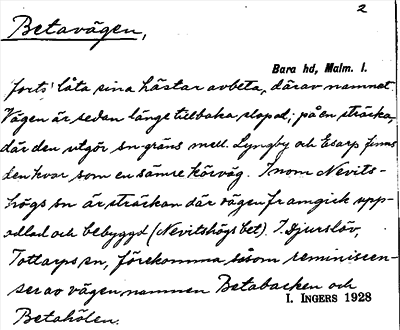 2
Betavägen,
Bara hd, Malm. l.
forts. låta sina hästar avbeta, därav namnet.
Vägen är sedan länge tillbaka slopad; på en sträcka,
där den utgör sn gräns mell. Lyngby och Esarp finns
den kvar som en sämre körväg. Inom Nevits-
högs sn är sträckan där vägen framgick upp-
odlad och bebyggd (Nevitshögs bet). I Djurslöv,
Tottarps sn, förekomma såsom reminiscen-
ser av vägen namnen Betabacken och
I. INGERS 1928
Betahölen.